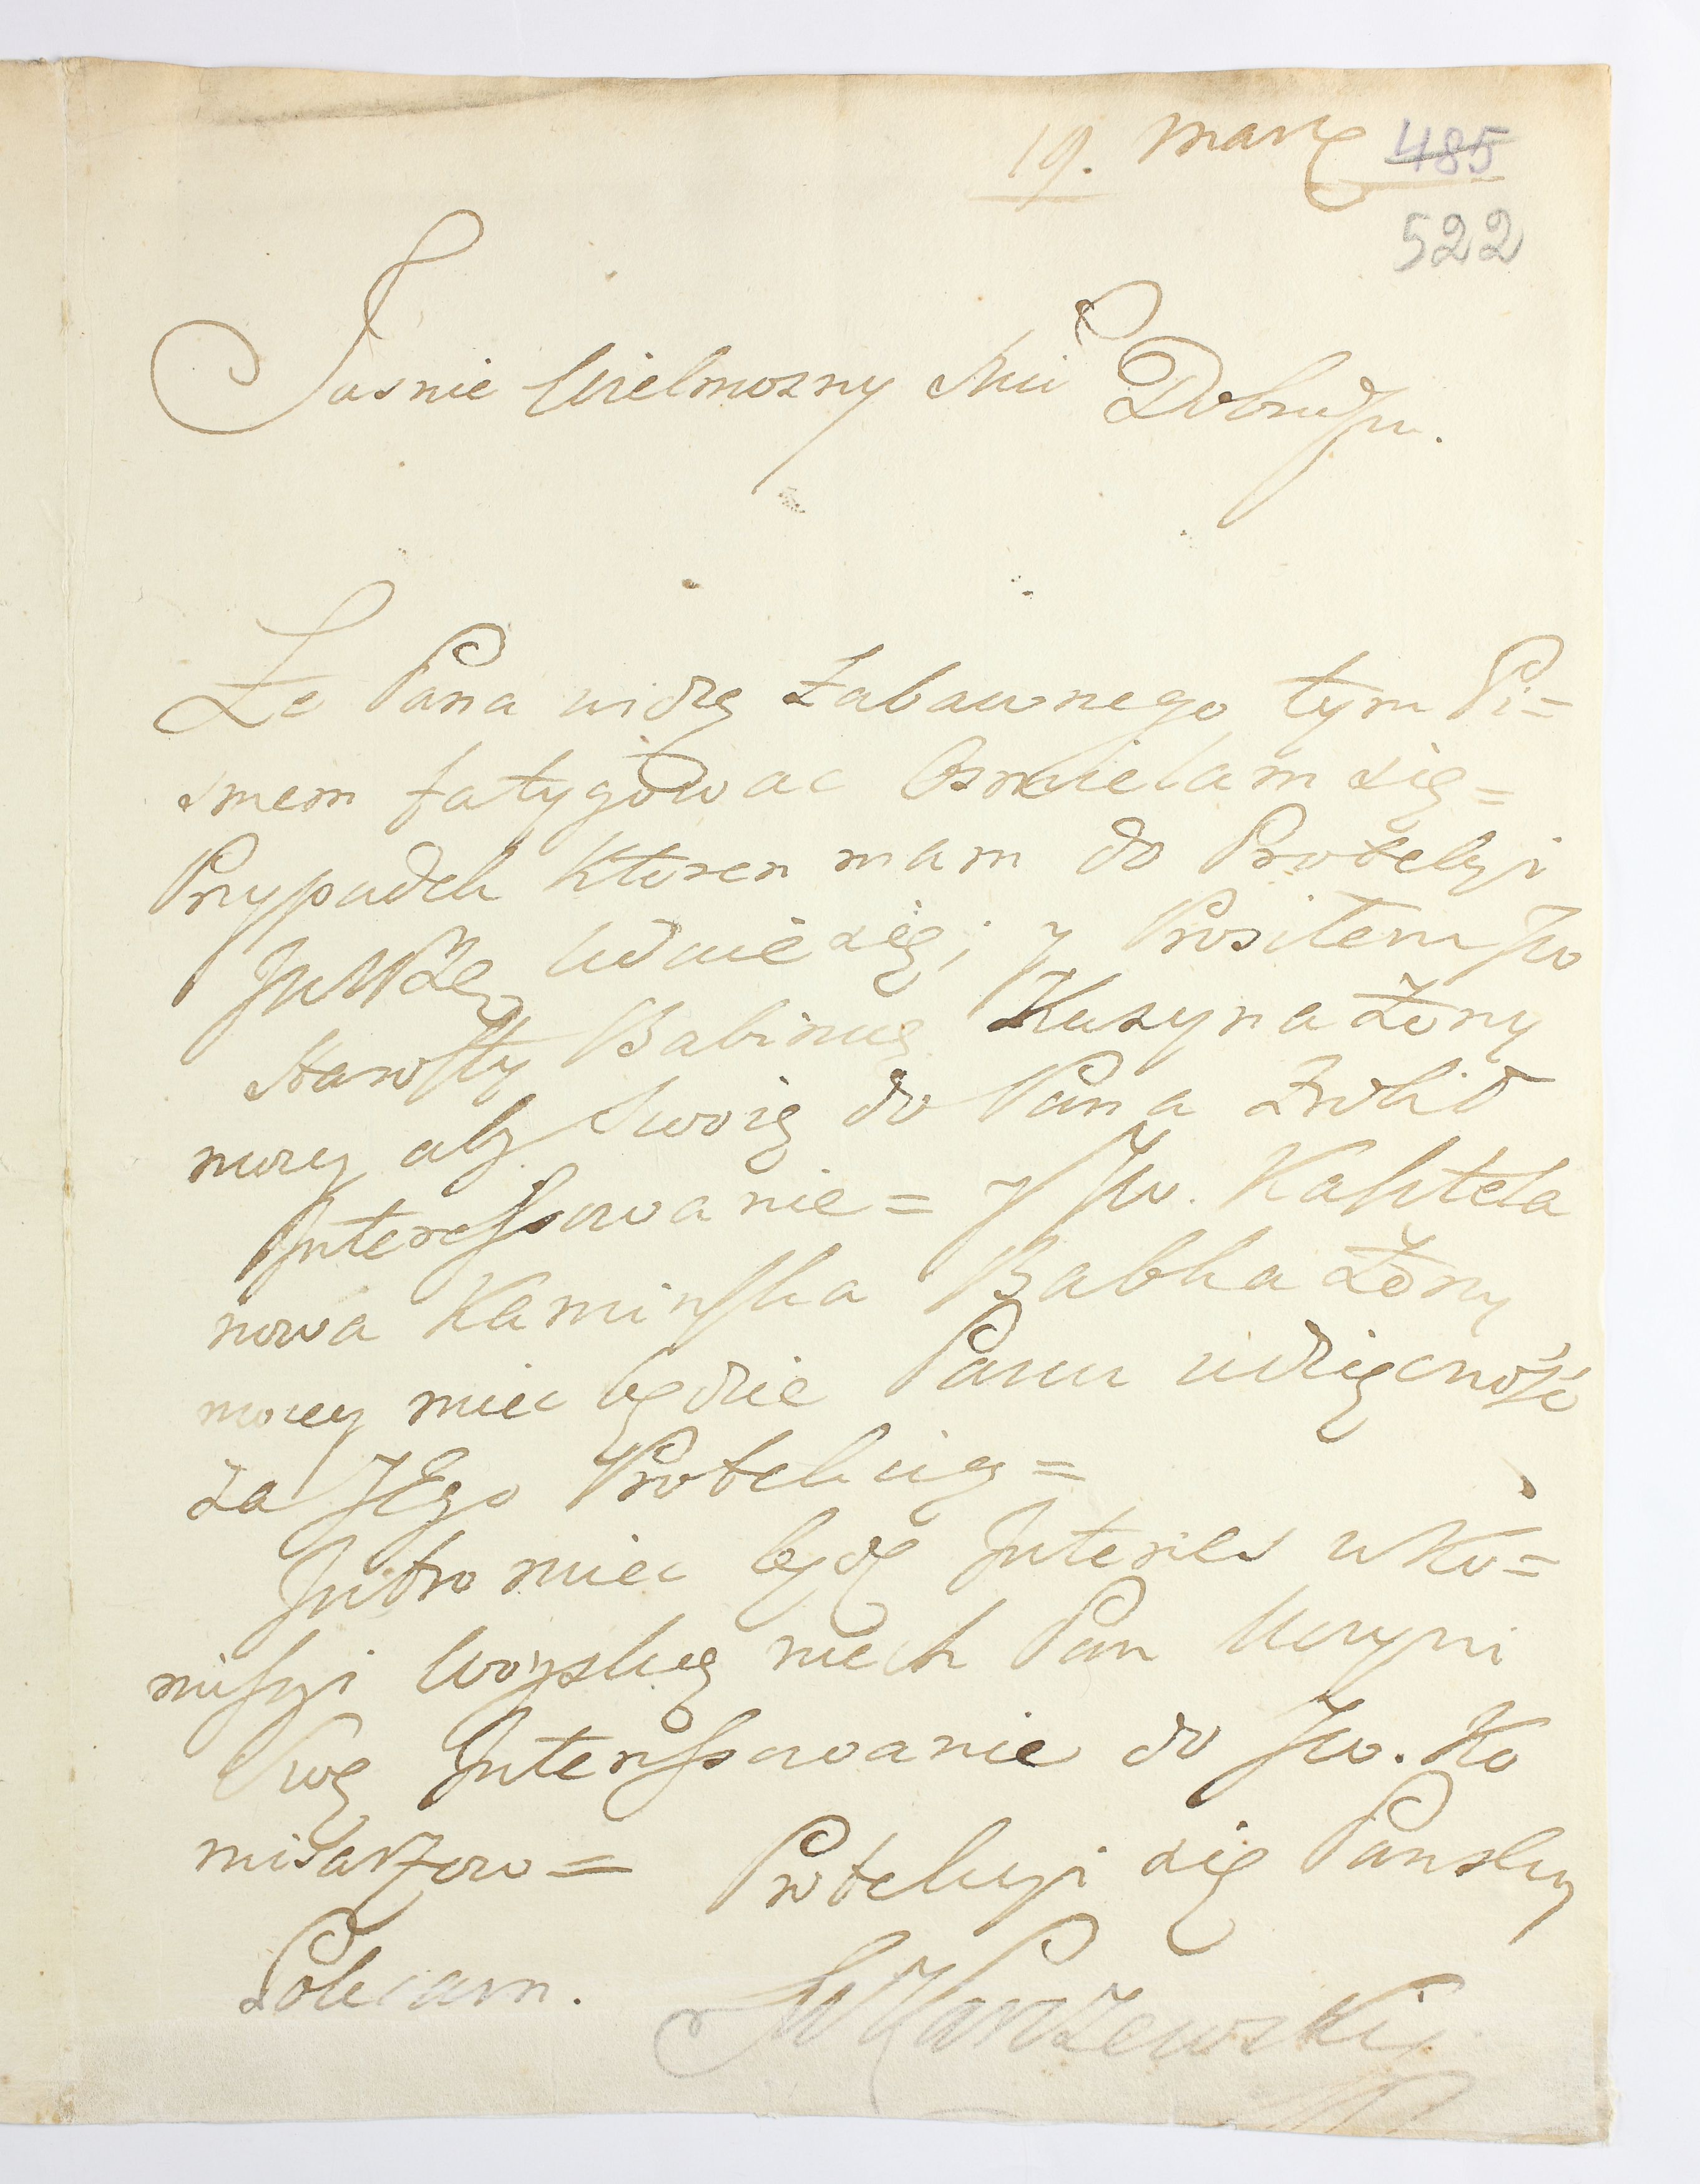 19. Marz 485
522
Jasnie Wielmozny Mci Dobrodzu.
Ze Pana widzę Zabawnego tym Pi=
smem fatygować Osmielam się=
Przypadek Ktoren mam do Protekcyi
udaie się, y Prosiłem Jw
Starosty Babinsę Kuzyna Żony
moiey aby Swoię do Pana Zrobił
Interessowanie = y Jw. Kasztela
nowa Kaminska Babka Żony
moiey miec będzie Panu wdzięcność
za JEgo Protekcię=
Jutro miec będę Interes w Ko=
missyi Woyskę niech Pan Uczyni
Swę Interessowanie do Jw. Ko
misarzow = Protekcyi się Panskiy
Polecam.
Karzewski